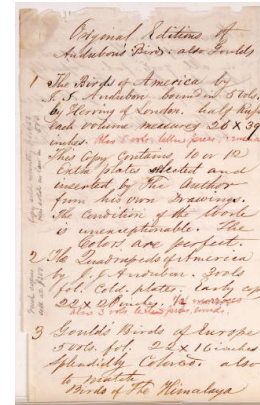 Original Editions of
Audubon's Birds. also Goulds
1 The Birds of America by
J. J. Audubon bound in 5 vols.
by Herring of London. half Russ
each volume measures 26 X 39
inches. Also 5 vols. letter press
This Copy Contains, 10 or 12
Extra plates selected and
inserted by the author
from his own Drawings.
The Condition of the Work
is unexceptionable. The
Colors are perfect.
2 The Quadrupeds of America
by J. J. Audubon. 3 vols
fol. Cold. plates. Early cop
22 X 28 inches. 1/2 morocco
also 3 vols letter press, bound.
3 Goulds' Birds of Europe
5 vols. fol. 22 X 16 inches
splendidly Colored. also
to match
Birds of The Himalaya